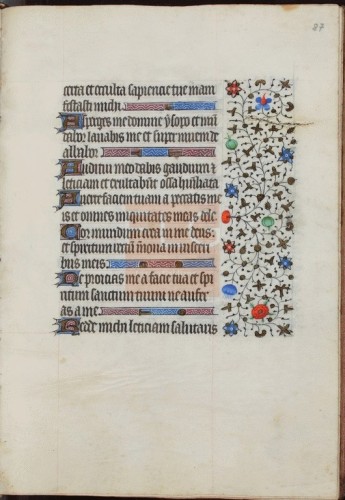 87
certa et occulta sapiencie tue mani
festasti michi.
Asperges me domine ysopo et mun
dabor lavabis me et super nivem de
albabor.
Auditui meo dabis gaudium et
leticiam et exultabunt ossa humiliata.
Averte faciem tuam a peccatis me
is et omnes iniquitates meas dele.
Cor mundum crea in me deus:
et spiritum rectum innova in visceri
bus meis.
Ne proicias me a facie tua et spi
ritum sanctum tuum ne aufer
as a me.
Redde michi leticiam salutaris